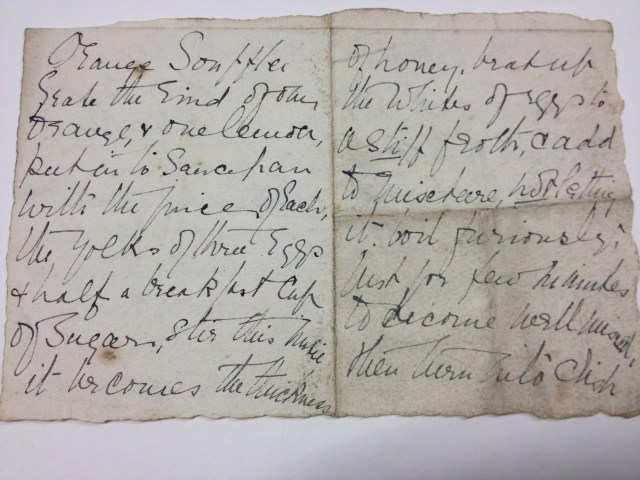 Orange Souffler
Grate the rind of one
orange, & one lemon,
put into Saucepan
with the juice of each,
the yolks of three Eggs
& half a breakfast Cup
of Sugar, stir this until
it becomes the thickness
of honey, beat up
the Whites of Eggs to
a stiff froth, & add
to mixture, not letting
it boil furiously,
but for few minutes
to become well mixed,
then turn into dish